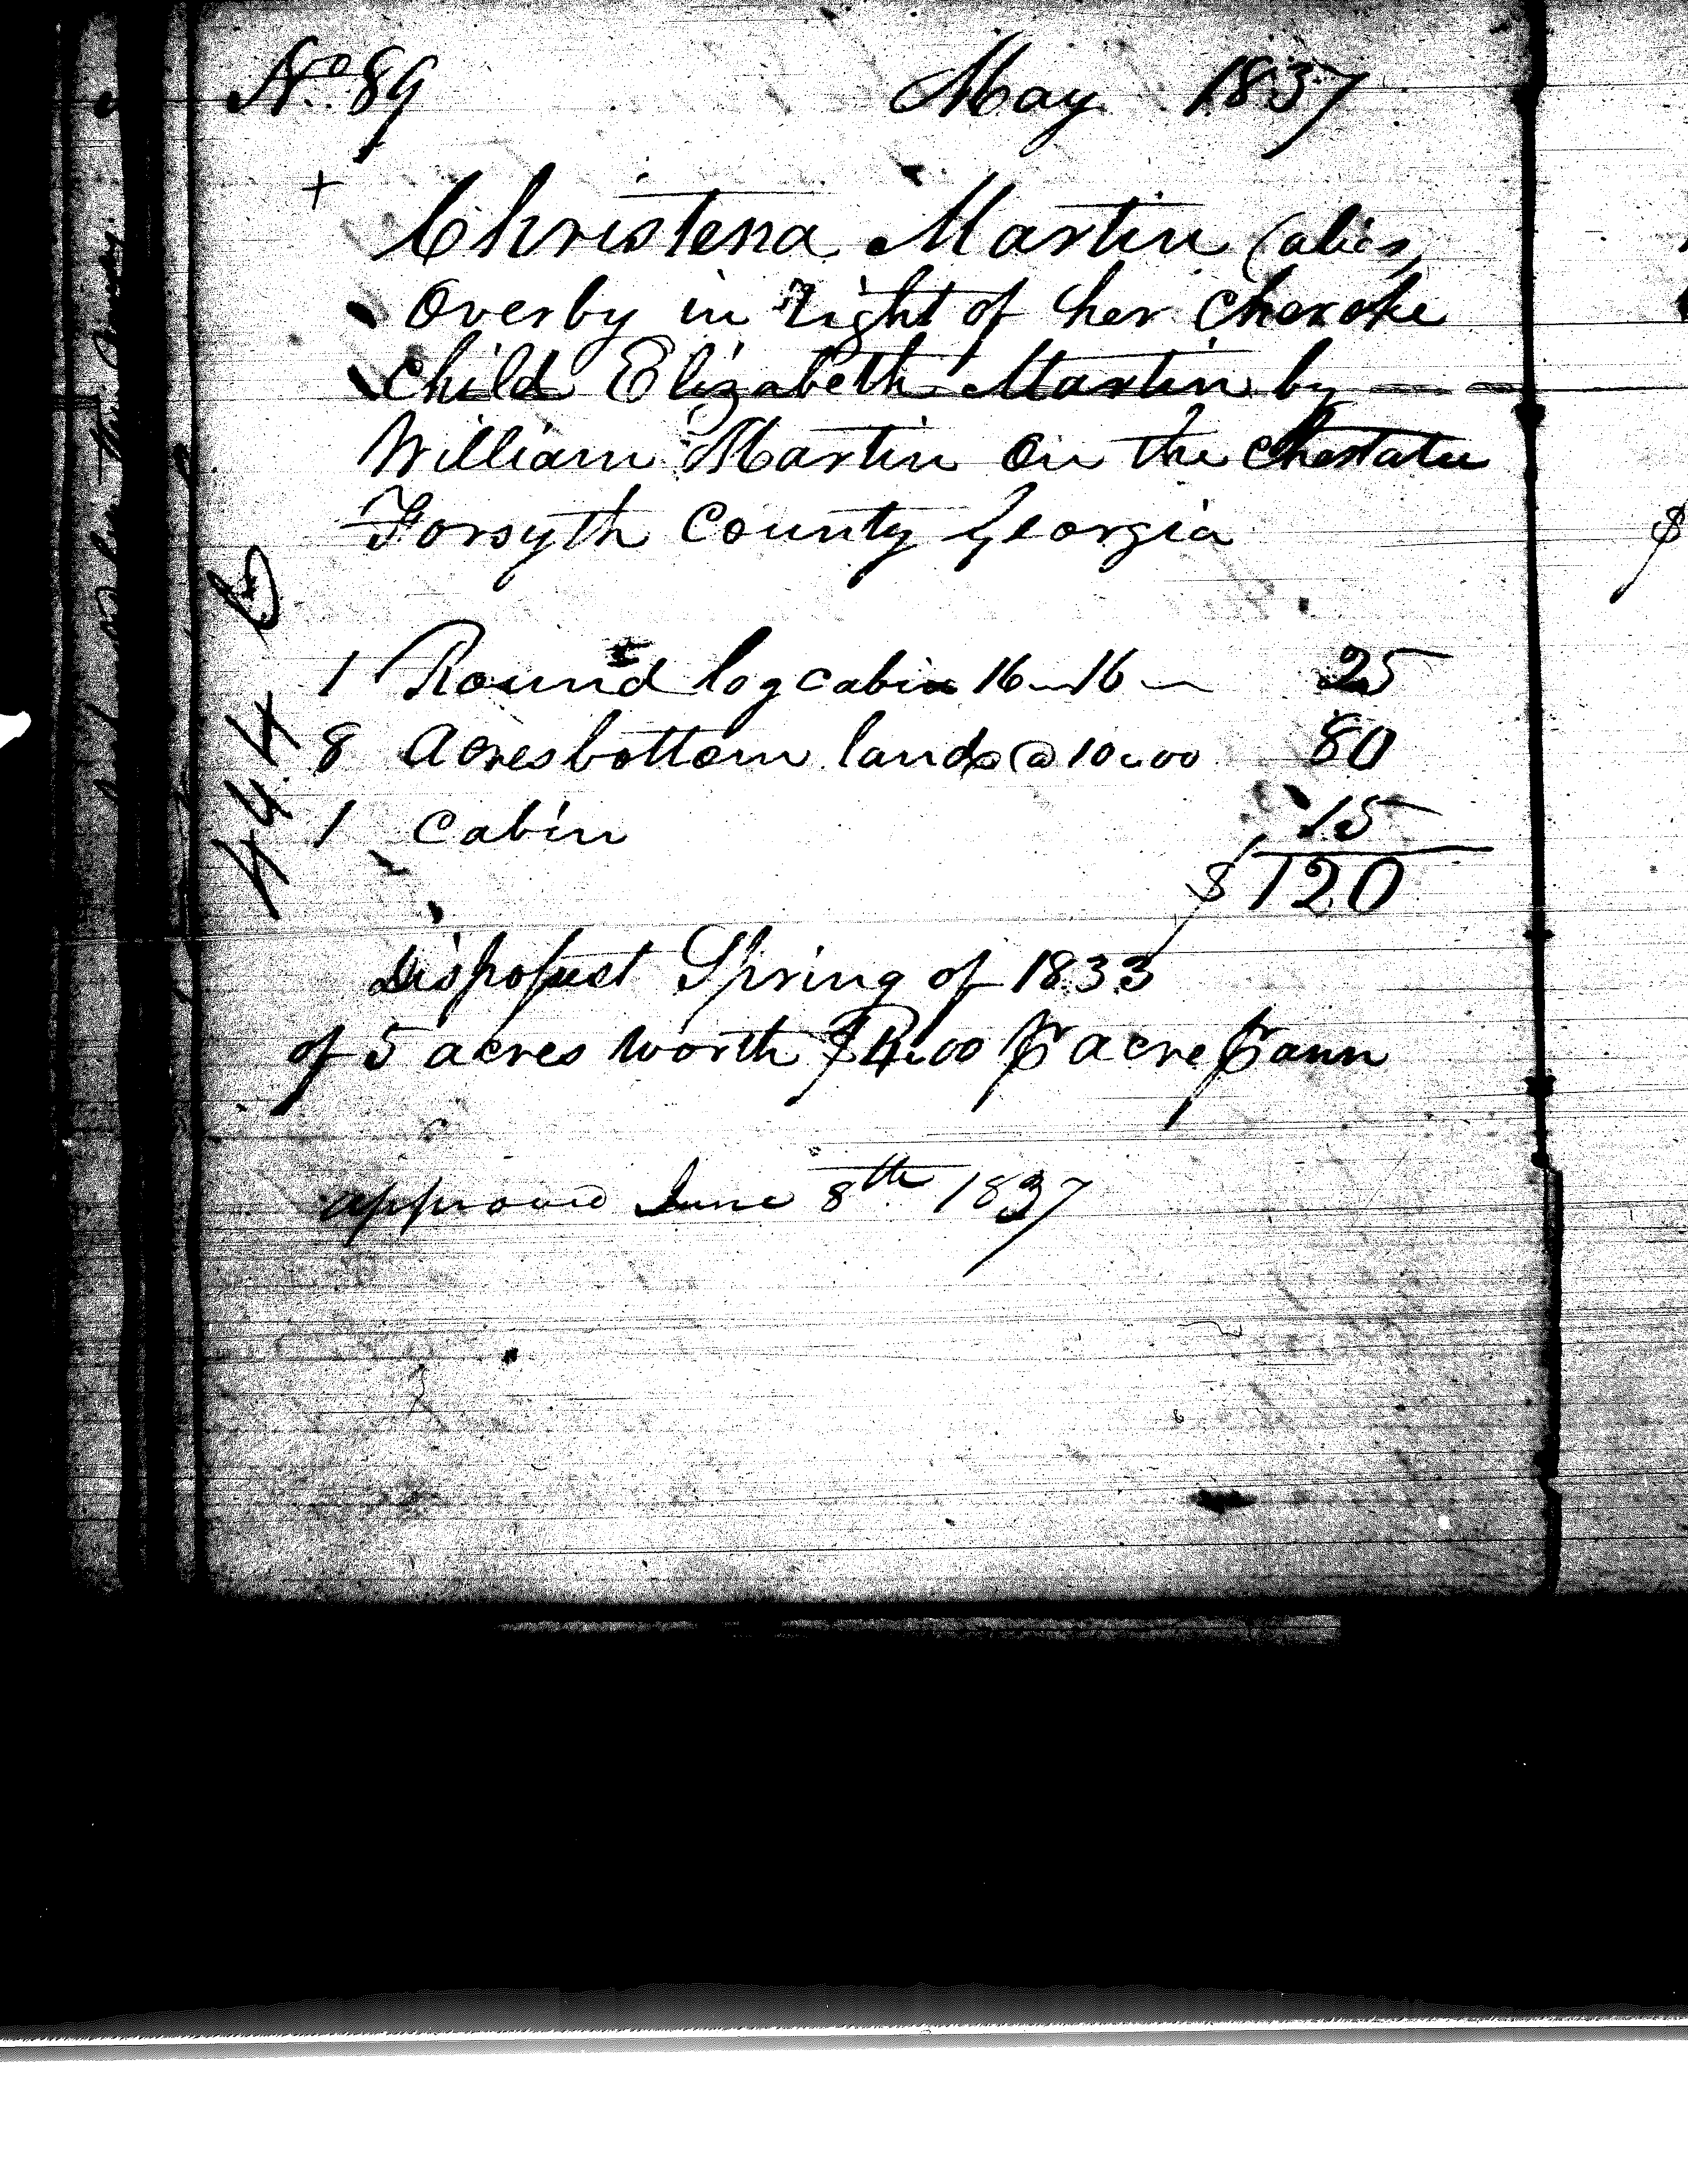 No. 89 May 1837
+
Christena Martin (alias
Overby in right of her Cherokee
Child Elizabeth Martin by
William Martin on the Chestatee
Forsyth County Georgia
1 Round log cabin 16 16 25
8 Acres bottom land @ 10.00 80
1 cabin 15
$120
Dispossest Spring of 1833
of 5 acres worth $4.00 pr acre pr ann
approved June 8th 1837
444
$